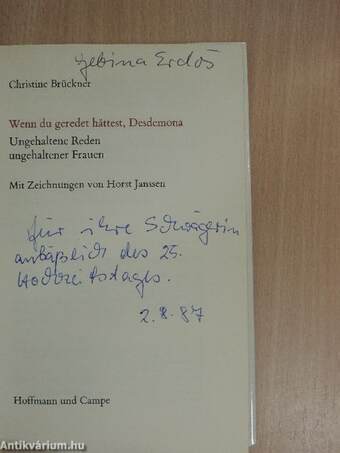 Erdős
Christine Brückner
Wenn du geredet hättest, Desdemona
Ungehaltene Reden
ungehaltener Frauen
Mit Zeichnungen von Horst Janssen
für ihre Schwägerin
anläßlich des 25.
Hochzeitstages.
2.8.87
Hoffmann und Campe
Antikvárium.hu